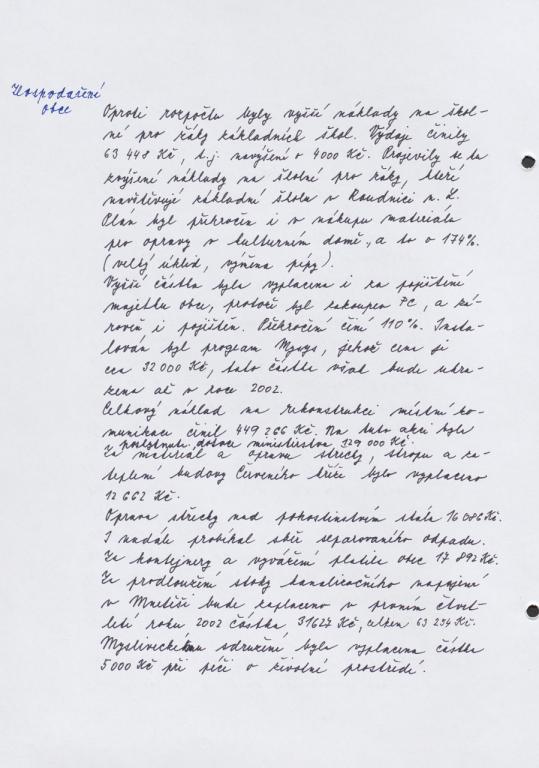 Hospodaření
obce
Oproti rozpočtu byly vyšší náklady na škol-
né pro žáky základních škol. Výdaj činily
63 448 Kč, t.j. navýšení o 4000 Kč. Projevily se tu
zvýšení náklady na školné pro žáky, kteří
navštěvují základní školu v Roudnici n. L.
Plán byl překročen i v nákupu materiálu
pro opravy v kulturním domě, a to o 174%.
(velký úklid, výměna pípy).
Vyšší částka byla vyplacena i za pojištění
majetku obce, protože byl zakoupen PC, a zá-
roveň i pojištěn. Překročení činí 110%. Insta-
lován byl program, jehož cena je
cca 32 000 Kč, tato částka však bude uhra-
zena až v roce 2002.
Celkový náklad na rekonstrukci místní ko-
munikace činil 449 266 Kč. Na tuto akci byla
poskytnuta dotace ministerstva 129 000 Kč.
Za materiál a opravu střechy, stropu a za-
teplení budovy Červeného kříže bylo vyplaceno
12 662 Kč.
Oprava střechy nad pohostinstvím stála 16 086 Kč.
I nadále probíhal sběr separovaného odpadu.
Za kontejnery a vyvážení platila obec 17 892 Kč.
Za prodloužení stoky kanalizačního napojení
v Mnetěši bude zaplaceno v prvním čtvrt-
letí roku 2002 částka 31627 Kč, celkem 63 254 Kč.
Mysliveckému sdružení byla vyplacena částka
5 000 Kč při péči o životní prostředí.